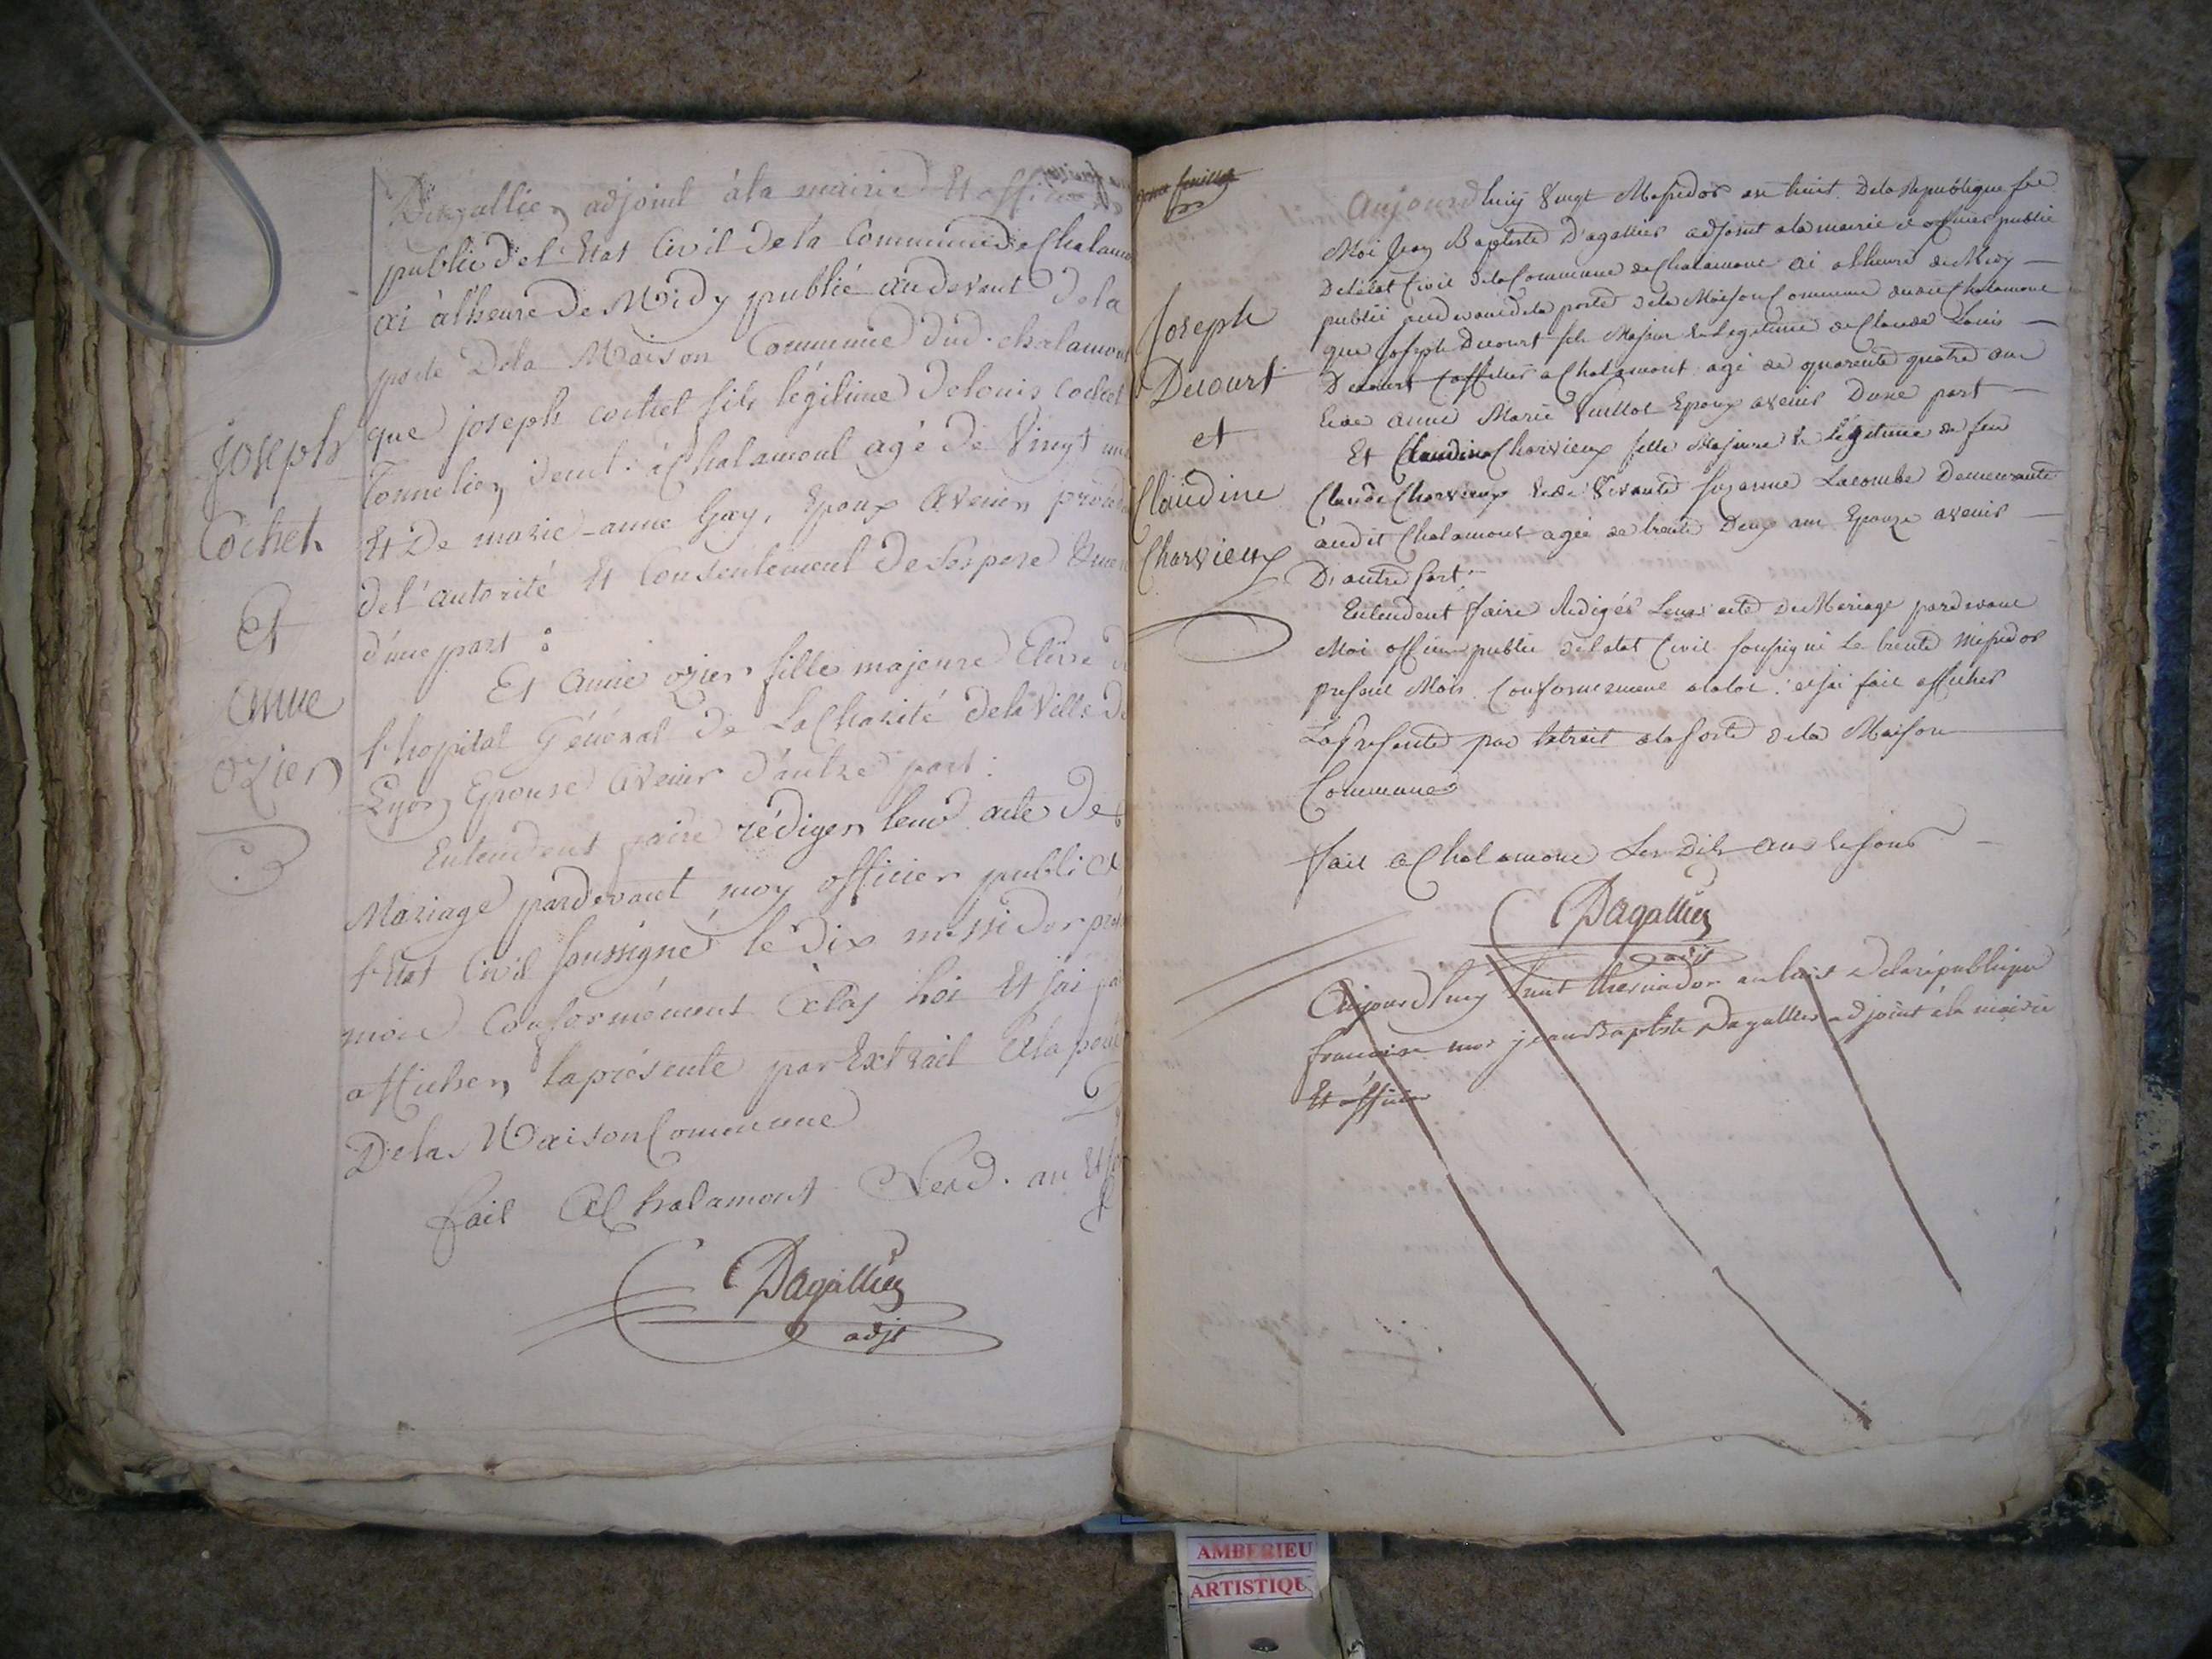 Dagallier adjoint à la mairie Et officier
public de l'Etat Civil de la Commune de Chalamo
ai à l'heure de Midy publié au devant de la
porte De la Maison Commune dud. chalamont
que joseph cochet fils légitime de louis cochet
Tonnelier, demt. à Chalamont agé de Vingt un
Et De marie-anne Guy, Epoux Avenir
de l'autorité Et Consentement de Son pere
d'une part :
Et Anne ozier fille majeure Elève de
l'hopital Général de La Charité de la Ville de
Lyon, Epouse Avenir d'autre part :
Entendent faire rédiger leur acte de
Mariage pardevant moy officier public de
l'Etat Civil soussigné le dix messidor
mois Conformément à la Loi Et j'ai fait
afficher, la présente par Extrait à la porte
De la Maison Commune
fait à Chalamont Lesd. an Et jour
Dagallier
adjt
Joseph
Cochet
Et
Anne
Ozier
feuillet
Joseph
Decourt
et
Claudine
Charvieux
Aujourd'huiy Vingt Messidor an huit De la République
Moi Jean Baptiste D'agallier adjoint a la mairie et officier public
De l'état Civil de la Commune de Chalamont ai a l'heure de Midy
publié audevant de la porte de la Maison Commune dudit Chalamont
que Joseph Decourt fils Majeur & Legitime de Claude Louis
Decourt a Chalamont agé de quarente quatre ans
& de Anne Marie Vuillot Epoux avenir D'une part
Et Claudine Charvieux fille Majeure & Légitime de feu
Claude Charvieux & de Vivante Suzanne Lacombe Demeurante
audit Chalamont agée de trente Deux ans Epouze avenir
D'autre part.
Entendent faire Rediger Leur acte de Mariage pardevant
Moi officier public de l'etat Civil soussigné Le trente Messidor
present Mois Conformement a la loi. et j'ai fait afficher
La presente par Extrait a la porte de la Maison
Commune
fait a Chalamont Les Dits ans & jour
Dagallier
adjt
Aujourd'huy huit thermidor an huit de la république
francaise moi jean Baptiste Dagallier adjoint à la mairie
Et officier
AMBERIEU
ARTISTIQU